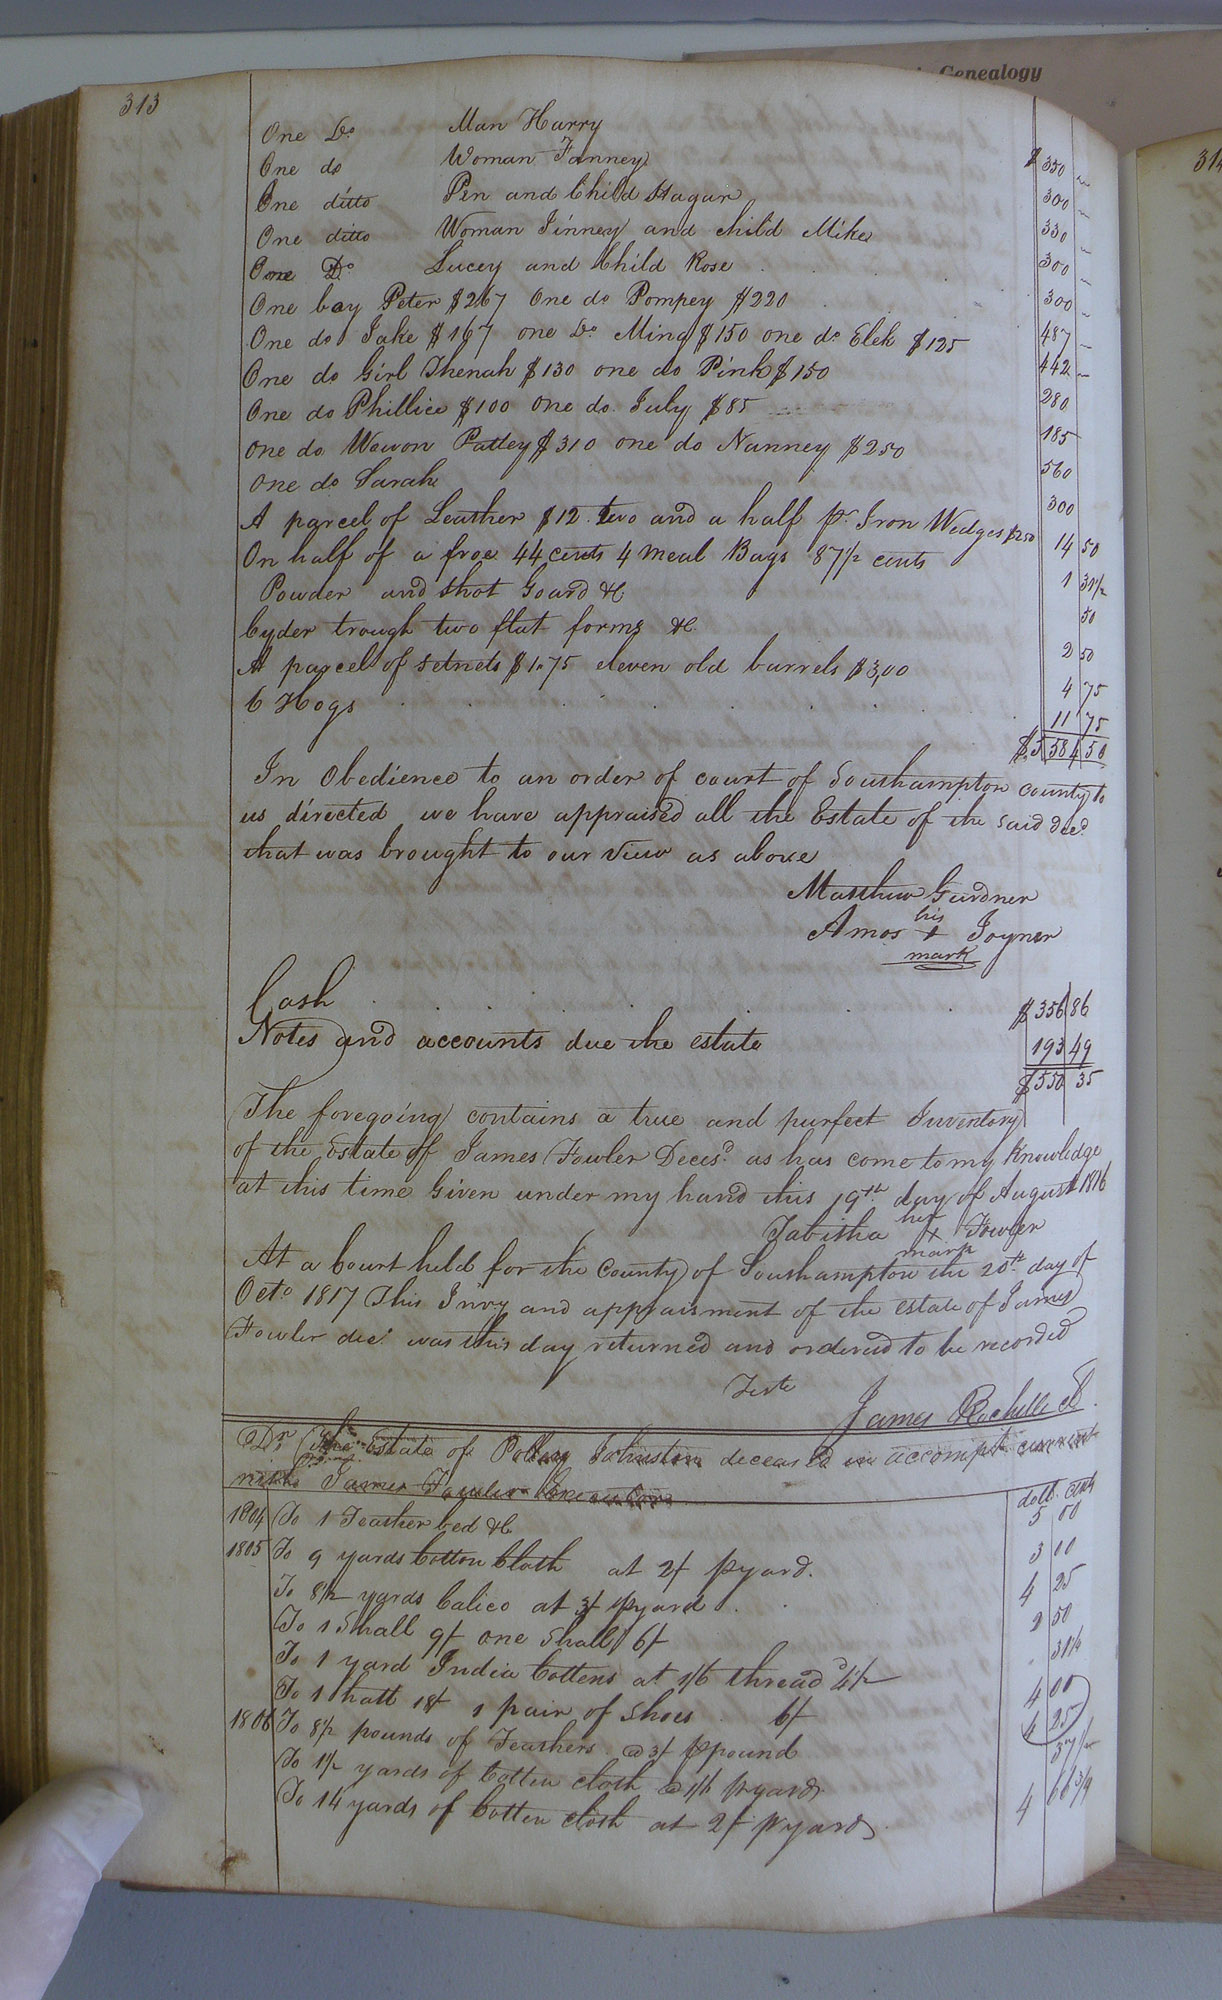 Genealogy
313
314
One Do Man Harry $ 350
One do Woman Fanney 300
One ditto Pen and Child Hagar 330
One ditto Woman Jinney and child Mike 300
One Do Lucey and Child Rose 300
One boy Peter $267 One do Pompey $220 487
One do Jake $167 one Do Ming $150 one do Elek $125 442
One do Girl Thenah $130 one do Pink $150 280
One do Phillice $100 one do July $85 185
One do Wowon Patley $310 one do Nanney $250 560
One do Sarah 300
A parcel of Leather $12. two and a half pr Iron Wedges $250 14 50
On half of a froe 44 cents 4 Meal Bags 87 1/2 cents 1 31 1/2
Powder and Shot Goard &c 50
Cyder trough two flat forms &c 2 50
A parcel of setnets $1.75 eleven old barrels $3,00 4 75
6 Hogs 11 75
$5584 50
In Obedience to an order of court of Southampton county to
us directed we have appraised all the Estate of the said decd
that was brought to our view as above
Matthew Gurdner
Amos his + Joyner
mark
Cash $356 86
Notes and accounts due the estate 193 49
$550 35
The foregoing contains a true and purfect Inventory
of the Estate of James Fowler Decesd as has come to my Knowledge
at this time Given under my hand this 19th day of August 1816
Tabitha her + Fowler
mark
At a Court held for the County of Southampton the 20th day of
Octo 1817 This Invy and appraisment of the estate of James
Fowler decd was this day returned and ordered to be recorded
Teste
James Rochelle Cl
Dr The Estate of Polley Johnston deceased in accompt current
with James Fowler Executor
doll. cents
1804 To 1 Feather bed &c 5 00
1805 To 9 yards Cotton Cloth at 2/ pyard. 3 00
To 8 1/2 yards Calico at 3/ pyard 4 25
To 1 Shall 9/ one Shall 6/ 2 50
To 1 yard India Cottens at 1/6 thread 4 1/2 31 1/4
To 1 hatt 18/ 1 pair of Shoes 6/ 4 00
1806 To 8 1/2 pounds of Feathers @ 3/ ppound 4 25
To 1 1/2 yards of Cotten cloth @ 1/6 pyard 37 1/2
To 14 yards of Cotten cloth at 2/ pyard 4 66 3/4